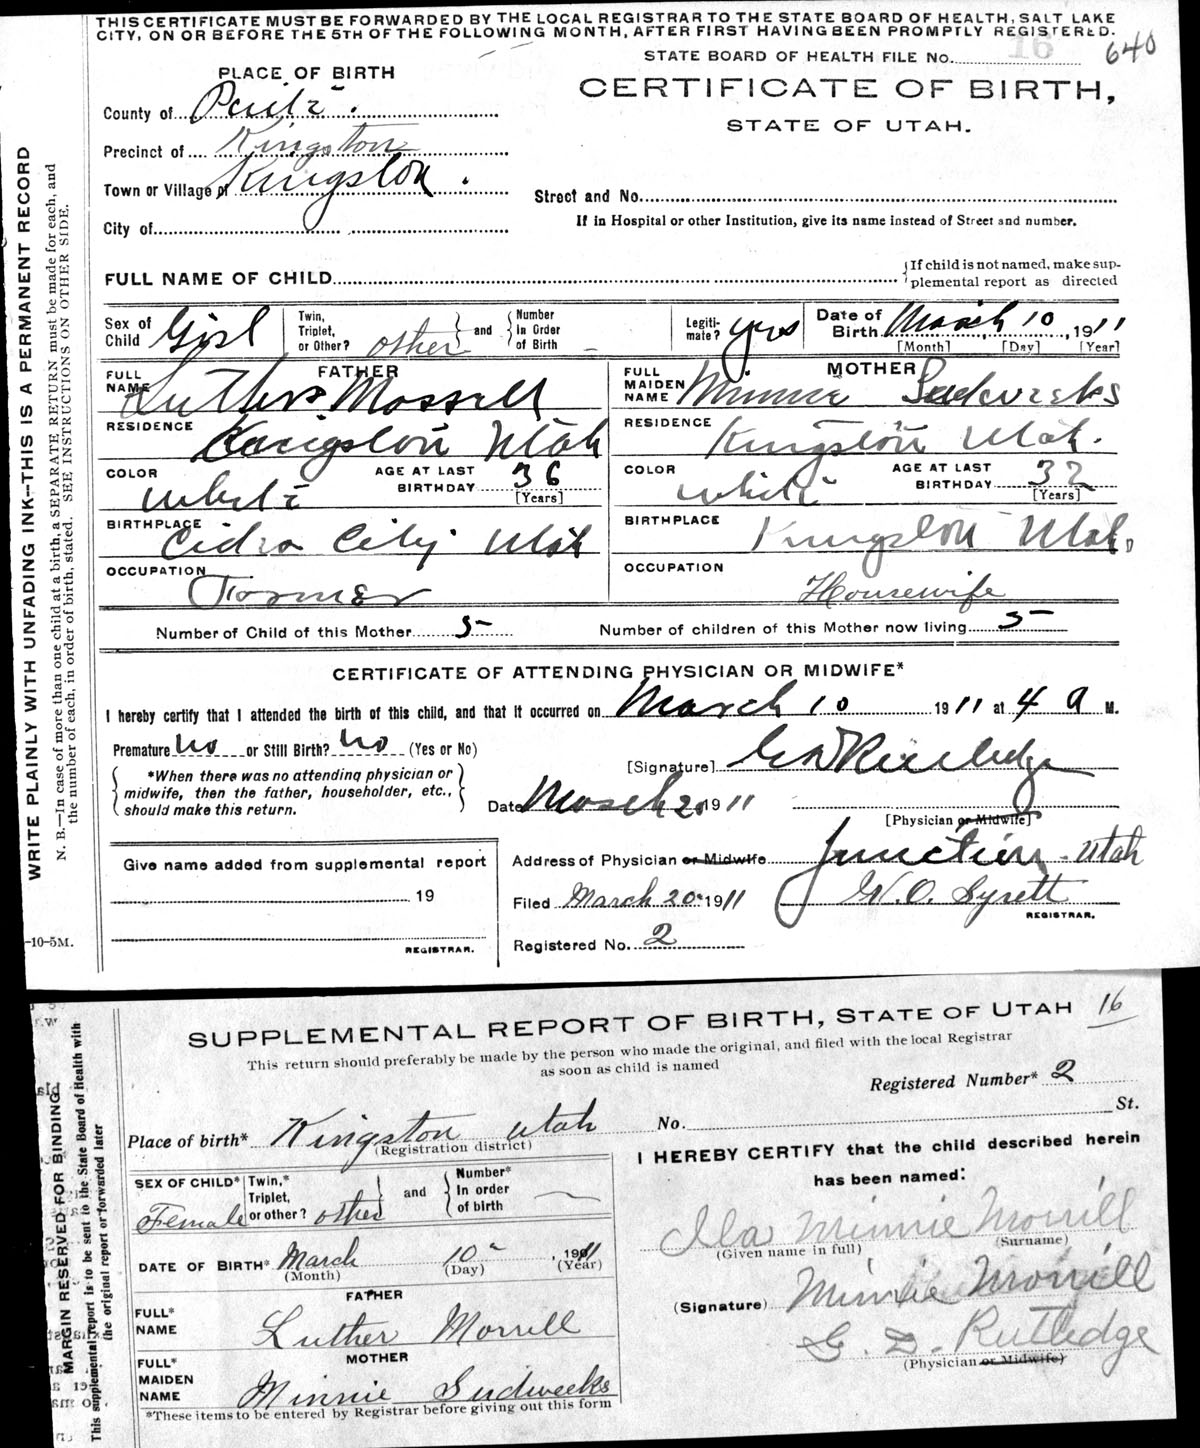 THIS CERTIFICATE MUST BE FORWARDED BY THE LOCAL REGISTRAR TO THE STATE BOARD OF HEALTH, SALT LAKE
CITY, ON OR BEFORE THE 5TH OF THE FOLLOWING MONTH, AFTER FIRST HAVING BEEN PROMPTLY REGISTERED.
STATE BOARD OF HEALTH FILE No. 16 640
PLACE OF BIRTH
CERTIFICATE OF BIRTH,
STATE OF UTAH.
County of
Precinct of Kingston
Town or Village of Kingston.
City of
Street and No.
If in Hospital or other Institution, give its name instead of Street and number.
FULL NAME OF CHILD
If child is not named, make sup-
plemental report as directed
Sex of Child Girl
Twin, Triplet, or Other? other and Number In Order of Birth –
Legiti- mate? yes
Date of Birth March 10, 1911
[Month] [Day] [Year]
FATHER
FULL NAME Luther Morrell
RESIDENCE Kingston Utah
COLOR White
AGE AT LAST BIRTHDAY 36
[Years]
BIRTHPLACE Cidra City Utah
OCCUPATION Farmer
MOTHER
FULL MAIDEN NAME Minnie Sudweeks
RESIDENCE Kingston Utah.
COLOR White
AGE AT LAST BIRTHDAY 32
[Years]
BIRTHPLACE Kingston Utah.
OCCUPATION Housewife
Number of Child of this Mother 5 Number of children of this Mother now living 5
CERTIFICATE OF ATTENDING PHYSICIAN OR MIDWIFE*
I hereby certify that I attended the birth of this child, and that it occurred on March 10 1911 at 4 a M.
Premature no or Still Birth? no (Yes or No)
*When there was no attending physician or
midwife, then the father, householder, etc.,
should make this return.
[Signature] G D Rutledge
Date March 20 1911
[Physician or Midwife]
Give name added from supplemental report
19
REGISTRAR.
Address of Physician or Midwife Junction - Utah
Filed March 20" 1911 W. O. Syrett
REGISTRAR.
Registered No. 2
WRITE PLAINLY WITH UNFADING INK--THIS IS A PERMANENT RECORD
N. B.—In case of more than one child at a birth, a SEPARATE RETURN must be made for each, and
the number of each, in order of birth, stated. SEE INSTRUCTIONS ON OTHER SIDE.
-10-5M.
SUPPLEMENTAL REPORT OF BIRTH, STATE OF UTAH 16
This return should preferably be made by the person who made the original, and filed with the local Registrar
as soon as child is named
Registered Number* 2
Place of birth* Kingston Utah
(Registration district)
No. St.
SEX OF CHILD* Female
Twin,* Triplet, or other? other and Number* In order of birth
DATE OF BIRTH* March 10" , 1911
(Month) (Day) (Year)
FATHER
FULL* NAME Luther Morrell
MOTHER
FULL* MAIDEN NAME Minnie Sudweeks
*These items to be entered by Registrar before giving out this form
I HEREBY CERTIFY that the child described herein
has been named:
Ila Minnie Morrill
(Given name in full) (Surname)
(Signature) Minnie Morrill
G. D. Rutledge
(Physician or Midwife)
MARGIN RESERVED FOR BINDING
This supplemental report is to be sent to the State Board of Health with
the original report or forwarded later